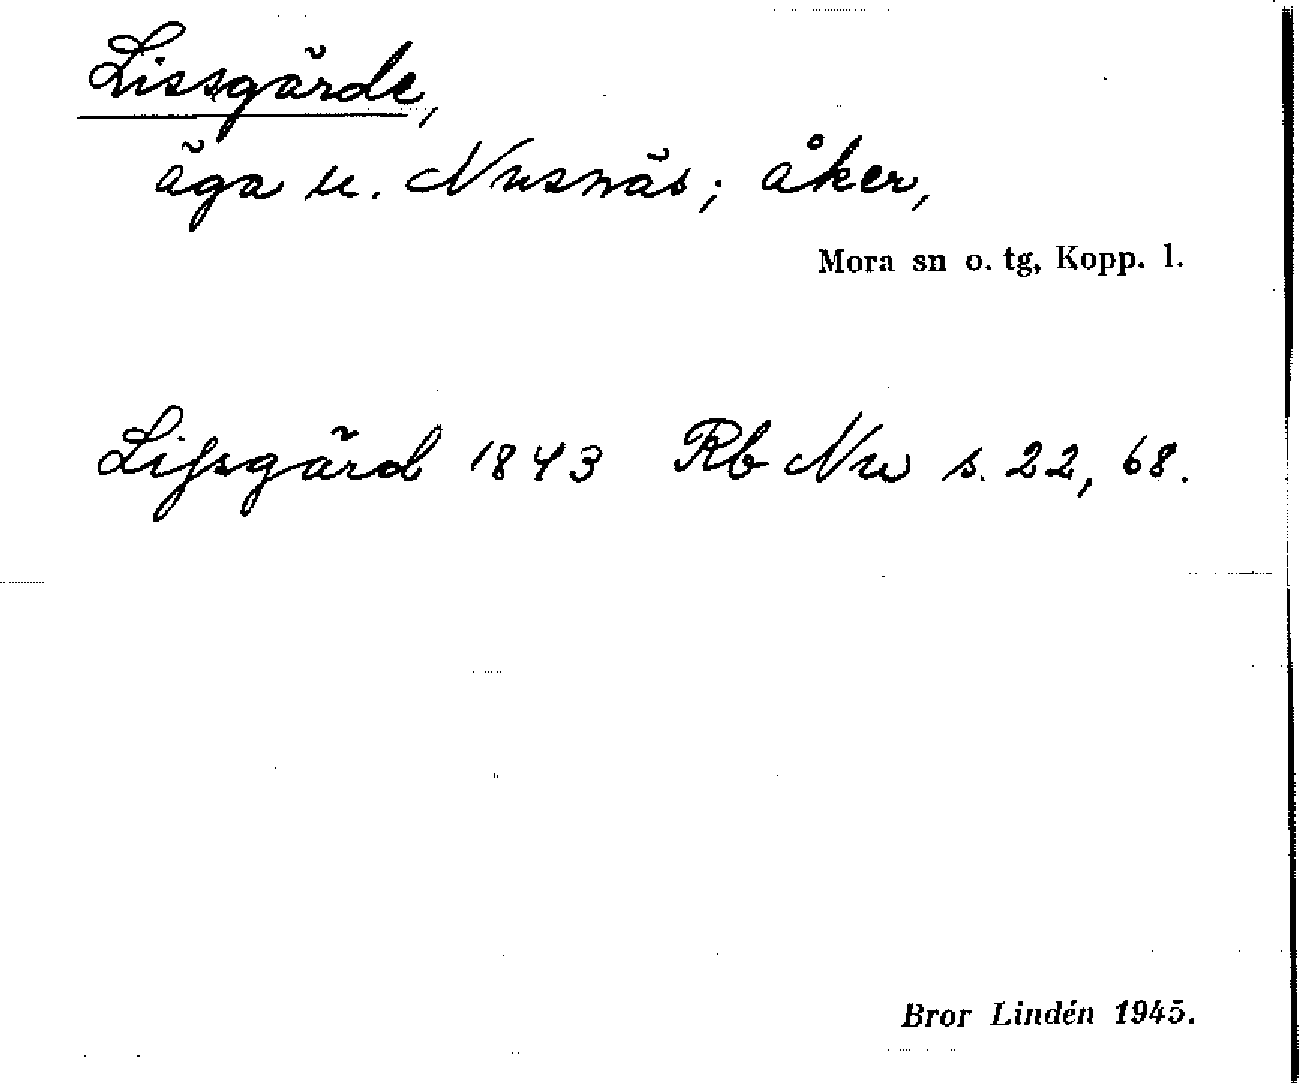 Lissgärde,
äga u. Nusnäs; åker,
Mora sn o. tg, Kopp. l.
Lissgärd 1843 Rb Nu s. 22, 68.
Bror Lindén 1945.